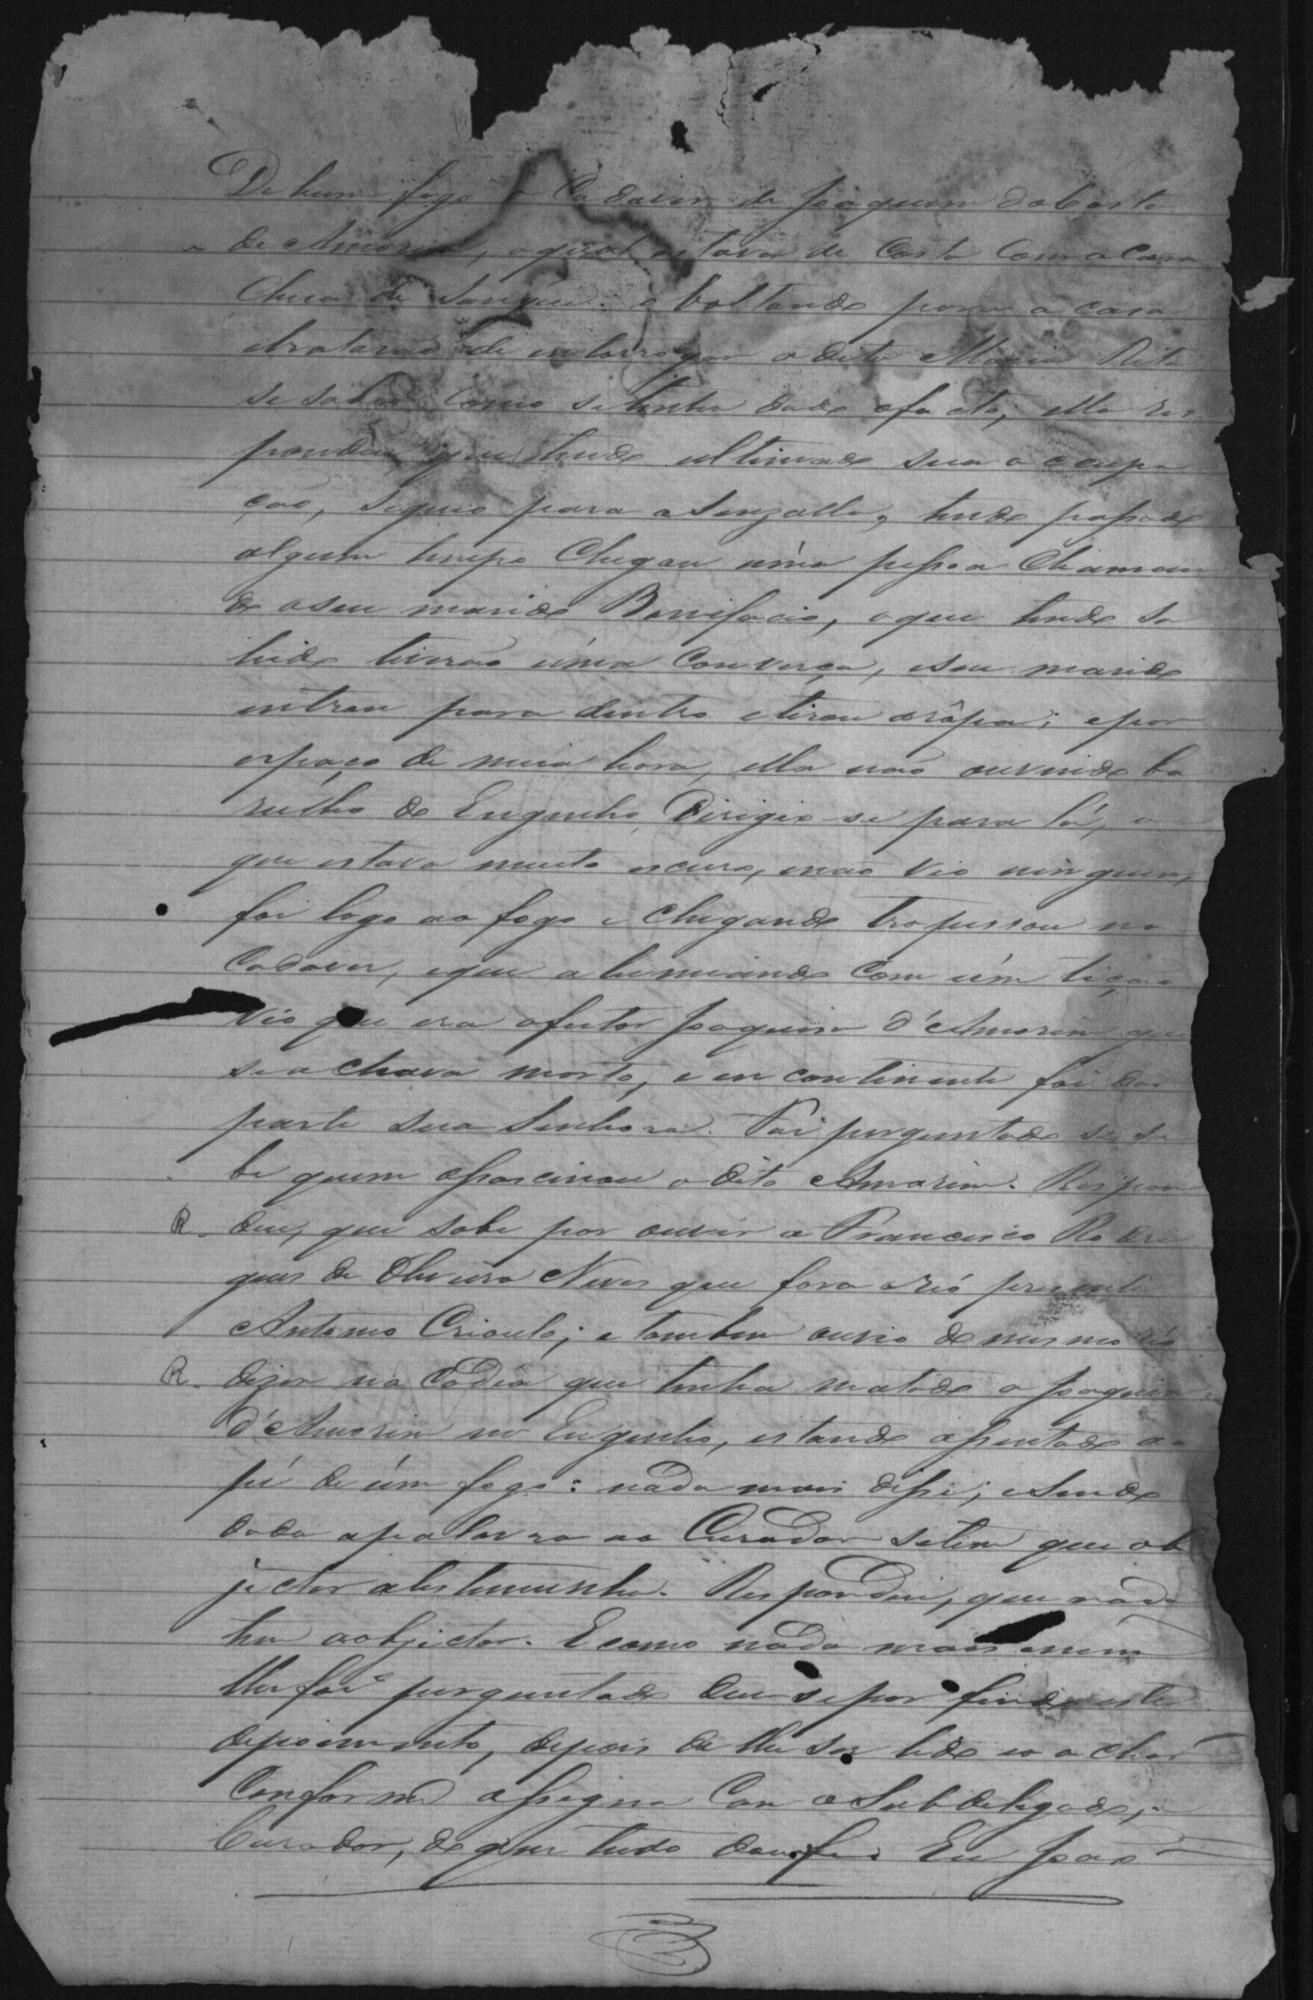 De hum fogo o Cadaver de Joaquim da Costa
de Amorim, o qual estava de Costa Com a Cara
Cheia de Sangue: e voltando para a casa
etratarao de enterrogar a dita Maria Rita
se sabia Como se tinha dado o facto; ella res
pondeu, que tendo ultimado sua occupa
ção, seguio para a Senzalla, tendo passado
algum tempo Chegou uma pessoa Chaman
do a seu marido Bonifacio, e que tendo sa
hido tiverão uma Conversa, e seu marido
entrou para dentro e tirou a rôpa; e por
espaço de meia hora, ella não ouvindo ba
rulho do Engenho, Dirigio-se para lá, e
que estava muito escuro, e não vio ninguem,
foi logo ao fogo e Chegando tropessou no
Cadaver, e que alumiando Com um tição
Vio que era o feitor Joaquim d'Amorim que
se achava morto, e en continente foi dar
parte sua Senhora. Foi perguntado se sa
be quem assacinou o dito Amorim. Respon
R. deu, que sabe por ouvir a Francisco Rodri
gues de Oliveira Neves que fora o réo presente
Antonio Crioulo; e tambem ouvio do mesmo réo
R. dizer na Cadêa que tinha matado a Joaquim
d'Amorim no Engenho, estando assentado ao
pé de um fogo: nada mais disse; e Sendo
dada a palavra ao Curador se tem que ob
jectar a testemunha. Respondeu, que nada
tem a objectar. E como nada mais e nem
lhe foi perguntado deu-se por findo este
depoimento, depois de lhe ser lido e o achar
Conforme assigna Com o Subdelegado, e
Curador, do que tudo dou fé. Eu João